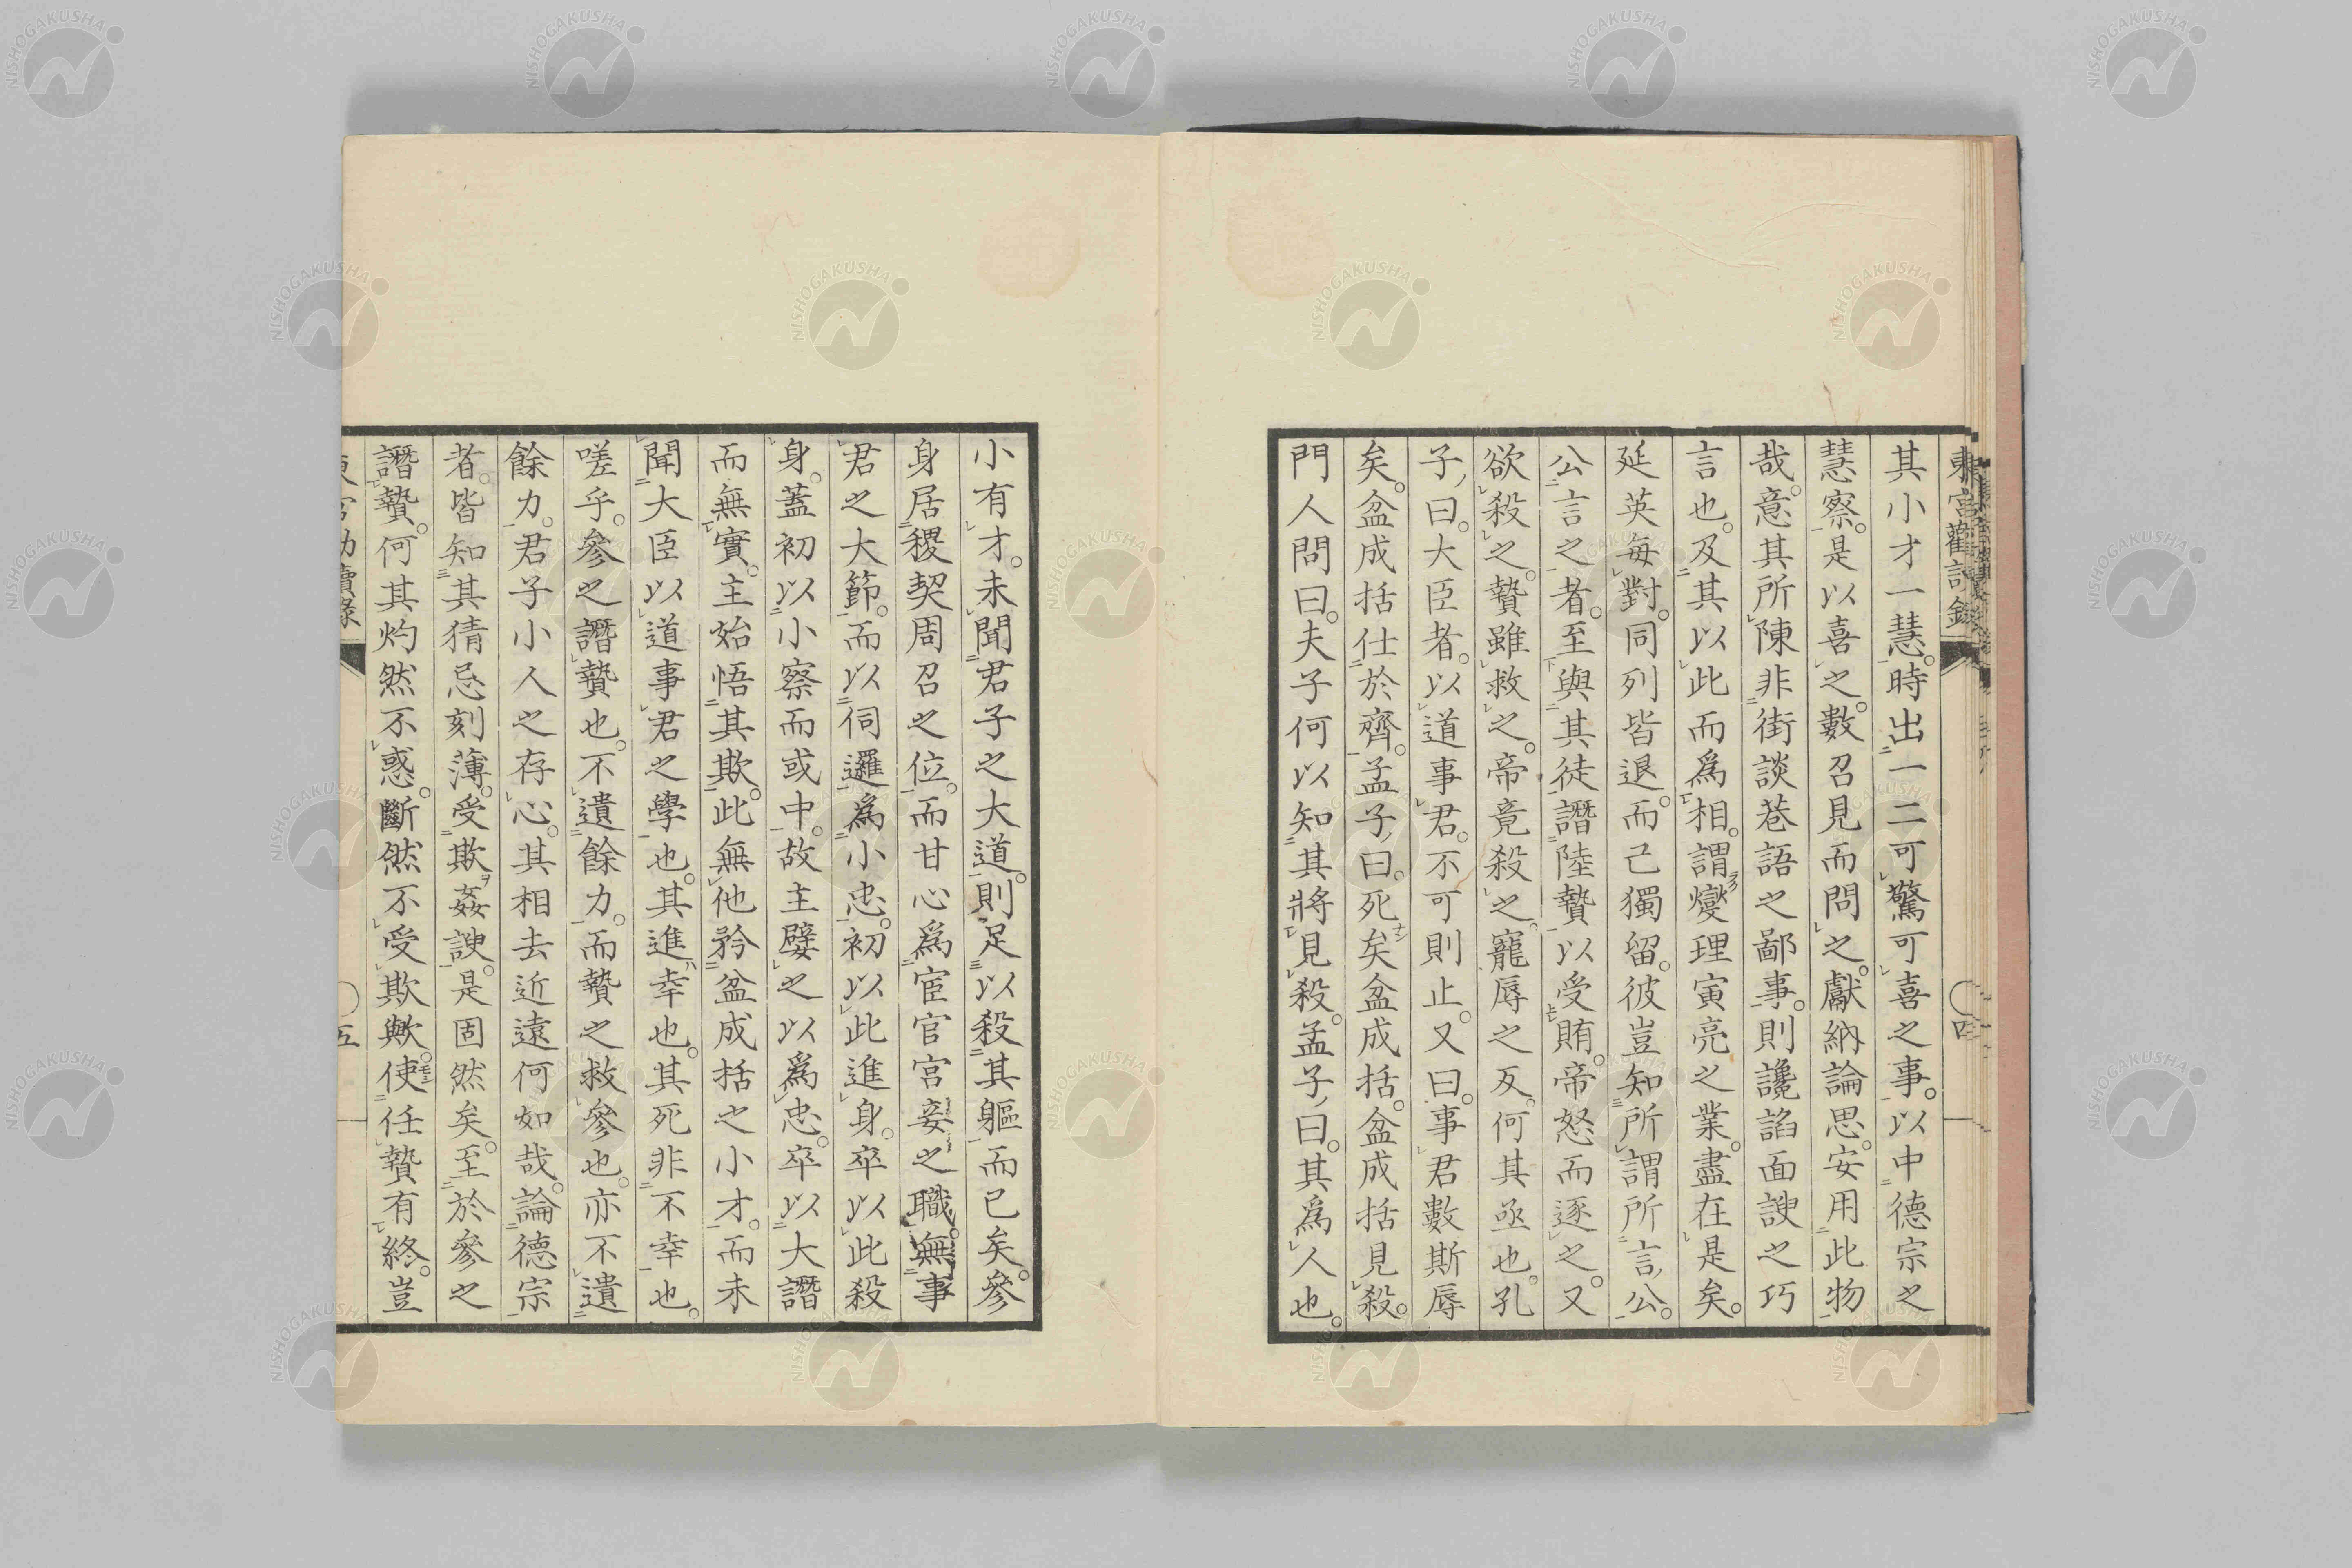 其小才一慧。時出一二可驚可喜之事。以中德宗之
慧察。是以喜之。數召見而問之。獻納論思。安用此物
哉。意其所陳非街談巷語之鄙事。則讒諂面諛之巧
言也。及其以此而爲相。謂燮理寅亮之業。盡在是矣。
延英每對。同列皆退。而己獨留。彼豈知所謂所言公。
公言之者。至與其徒譖陸贄以受賄。帝怒而逐之。又
欲殺之。贄雖救之。帝竟殺之。寵辱之反。何其亟也。孔
子曰。大臣者。以道事君。不可則止。又曰。事君數斯辱
矣。盆成括仕於齊。孟子曰。死矣盆成括。盆成括見殺。
門人問曰。夫子何以知其將見殺。孟子曰。其爲人也。
小有才。未聞君子之大道。則足以殺其軀而已矣。參
身居稷契周召之位。而甘心爲宦官宮妾之職。無事
君之大節。而以伺邏爲小忠。初以此進身。卒以此殺
身。蓋初以小察而或中。故主嬖之以爲忠。卒以大譖
而無實。主始悟其欺。此無他矜盆成括之小才。而未
聞大臣以道事君之學也。其進幸也。其死非不幸也。
嗟乎。參之譖贄也。不遺餘力。而贄之救參也。亦不遺
餘力。君子小人之存心。其相去近遠何如哉。論德宗
者。皆知其猜忌刻薄。受欺姦諛。是固然矣。至於參之
譖贄。何其灼然不惑。斷然不受欺歟。使任贄有終。豈
五
NISHOGAKUSHA